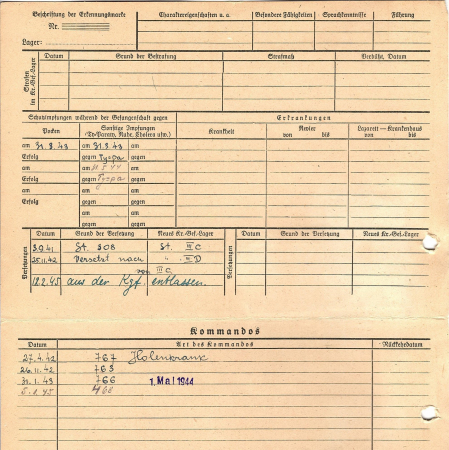 Beschriftung der Erkennungsmarke
Nr.
Lager:
Charaktereigenschaften u. a.
Besondere Fähigkeiten
Sprachkenntnisse
Führung
Strafen im Kr.-Gef.-Lager
Datum
Grund der Bestrafung
Strafmaß
Verbüßt, Datum
Schutzimpfungen während der Gefangenschaft gegen
Erkrankungen
Pocken
Sonstige Impfungen
(Ty-Paraty, Ruhr, Cholera usw.)
Krankheit
Revier
von bis
Lazarett — Krankenhaus
von bis
am 31.8.43 am 31.8.43 am
Erfolg gegen Tyspa gegen
am am am
Erfolg gegen Tyspa gegen
am am am
Erfolg gegen gegen
am am
gegen gegen
Versetzungen
Datum Grund der Versetzung Neues Kr.-Gef.-Lager
Versetzungen
Datum Grund der Versetzung Neues Kr.-Gef.-Lager
3.9.41 St. 308 St. III C
25.11.42 versetzt nach " III D
von III C
12.2.45 aus der Kgf. entlassen.
Kommandos
Datum Art des Kommandos Rückkehrdatum
27.4.42 767
26.11.42 763
31.1.43 766 1. Mai 1944